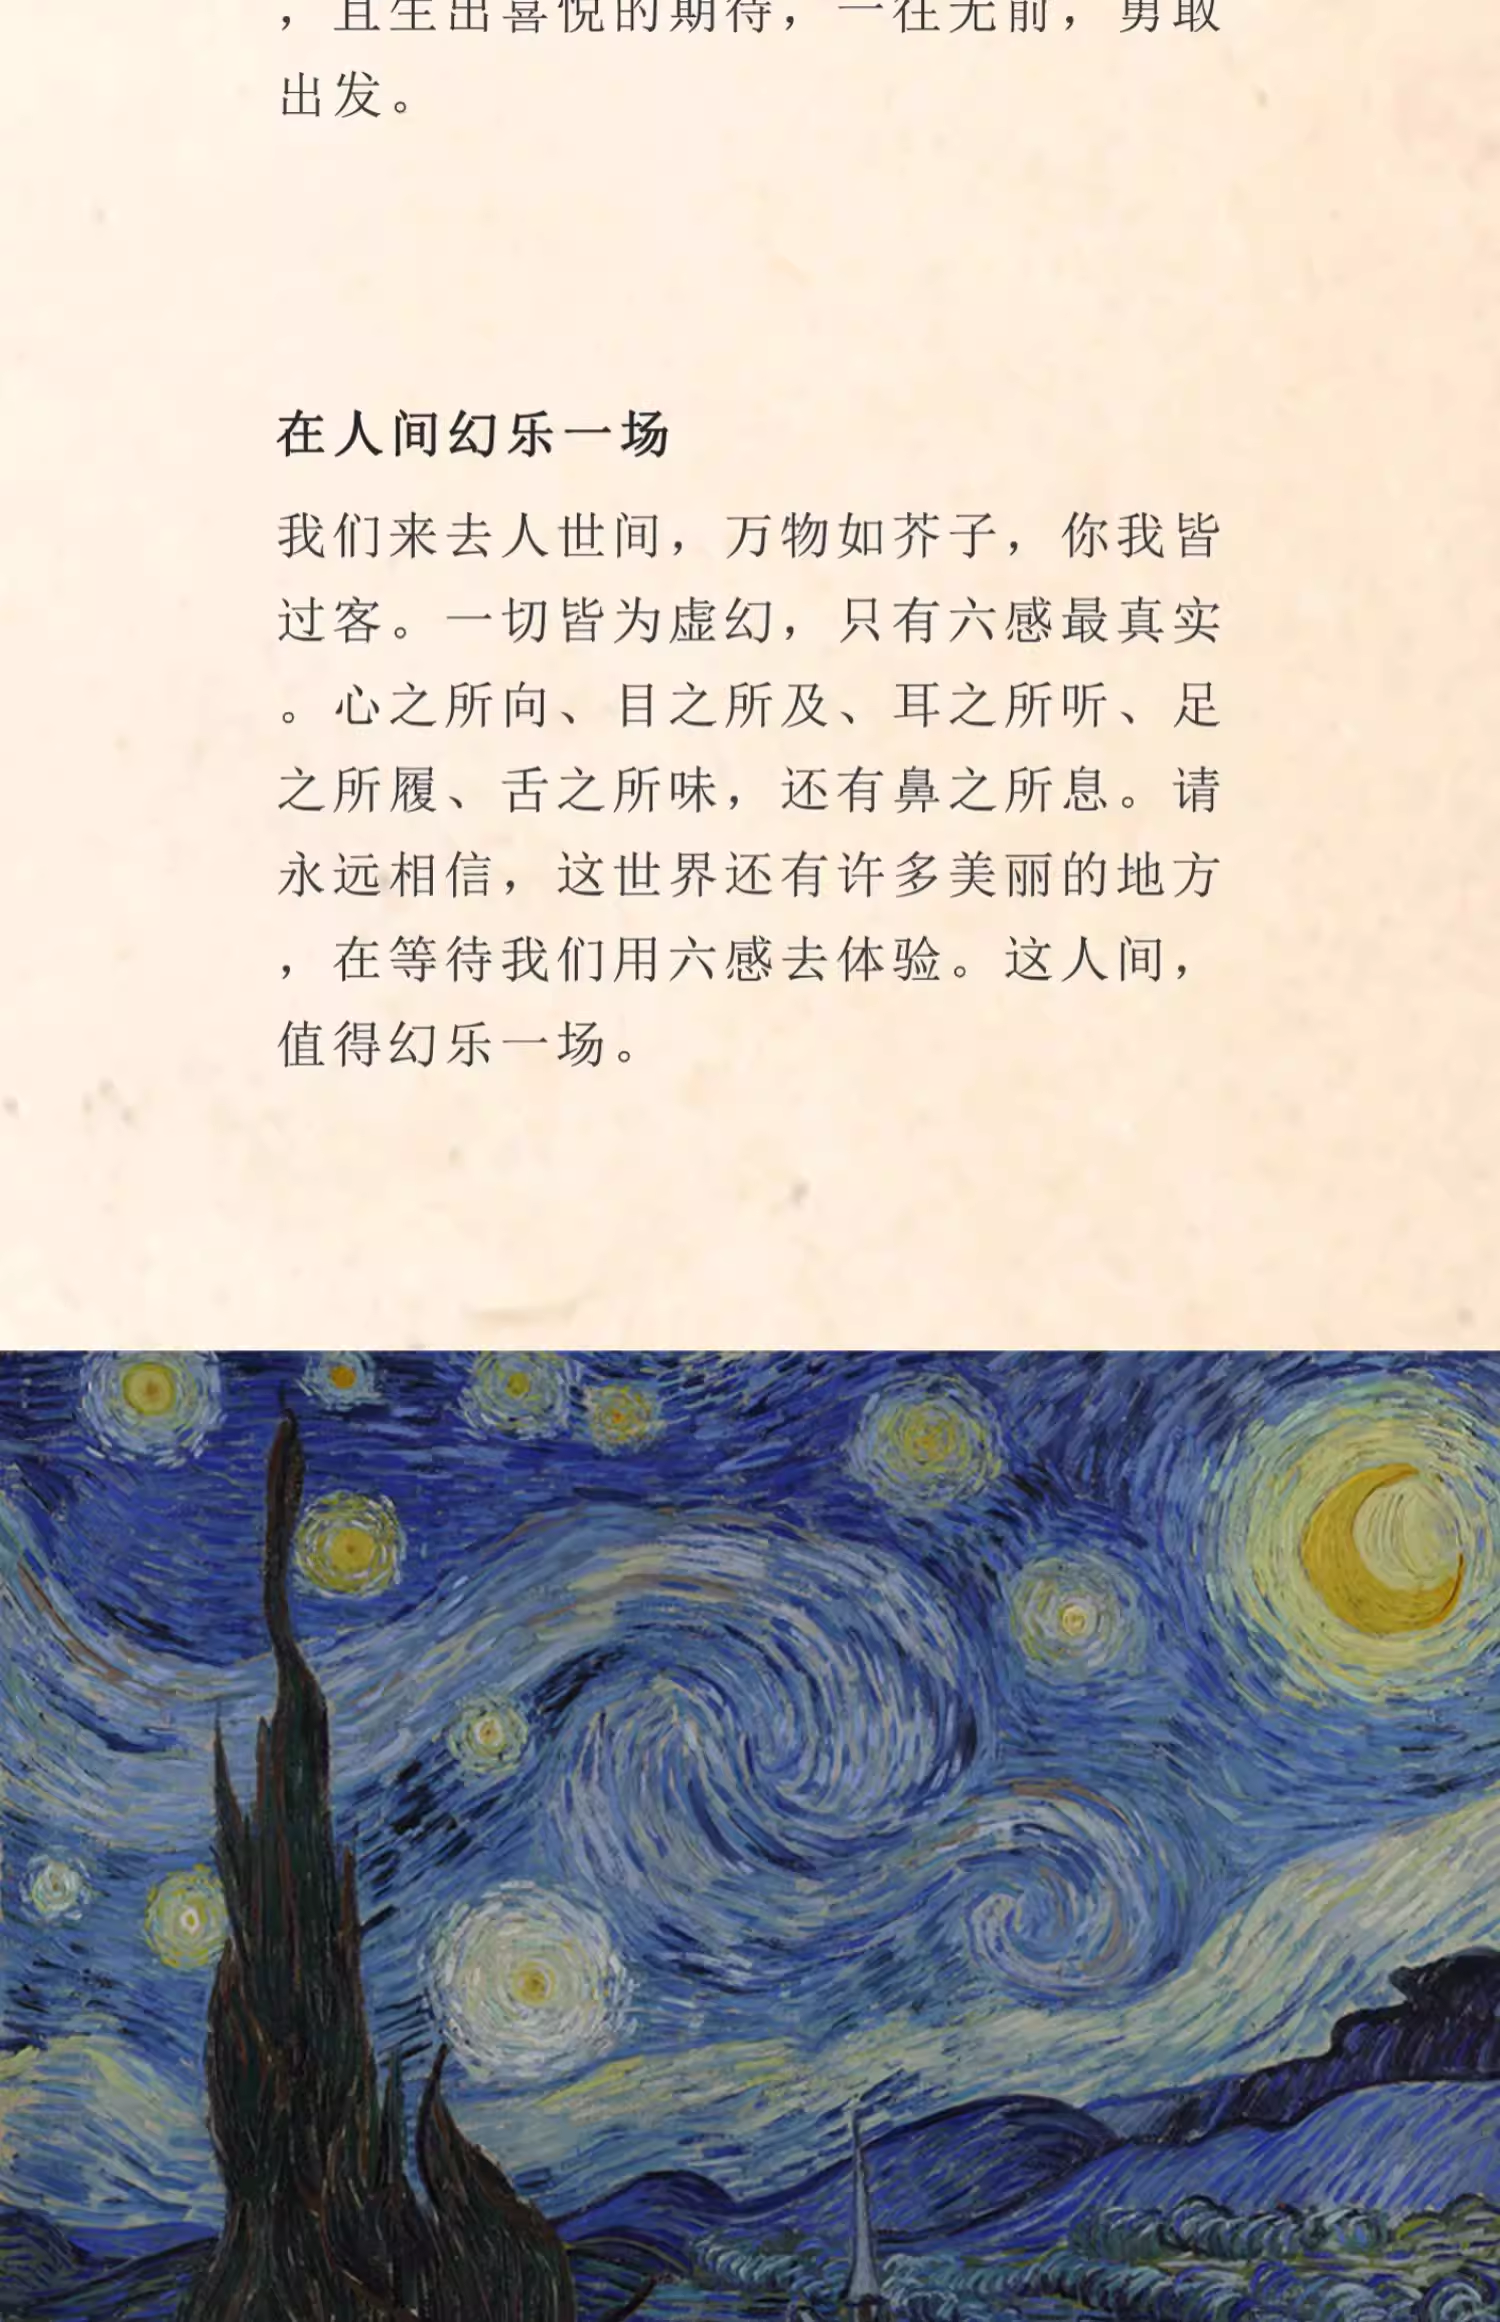 ，且生出喜悦的期待，一往无前，勇敢
出发。
在人间幻乐一场
我们来去人世间，万物如芥子，你我皆
过客。一切皆为虚幻，只有六感最真实
。心之所向、目之所及、耳之所听、足
之所履、舌之所味，还有鼻之所息。请
永远相信，这世界还有许多美丽的地方
，在等待我们用六感去体验。这人间，
值得幻乐一场。